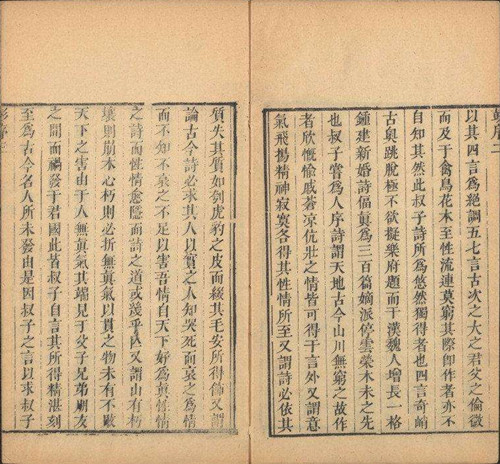 以其四言爲絕調五七言古次之大之君父之倫微
而及于禽鳥花木至性流連莫窮其際卽作者亦不
自知其然此叔子詩所爲悠然獨得者也四言奇峭
古奧跳脫極不欲擬樂府題而于漢魏人增長一格
鍾建新婚詩爲三百篇嫡派停雲榮木未之先
也叔子嘗爲人序詩謂天地古今山川無窮之故作
者欣慨愉戚凉伉壯之情皆可得于言外又謂意
氣飛揚精神寂寞各得其性情所至又謂詩必依其
質失其質如剝虎豹之皮而綴其毛安所得飾又謂
論古今詩必求其人以實之人知哭死而哀之爲情
而不知不哀之不足以害吾情自天下好爲眞情
之詩而性情愈隱而詩之道或幾乎又謂山有朽
壤則崩木心朽則必折無眞氣以貫之物未有不敝
天下之害由于人無眞氣其端見于父子兄弟朋友
之間而禍發于君國此皆叔子自言其所得精湛刻
至爲古今名人所未發由是因叔子之言以求叔子